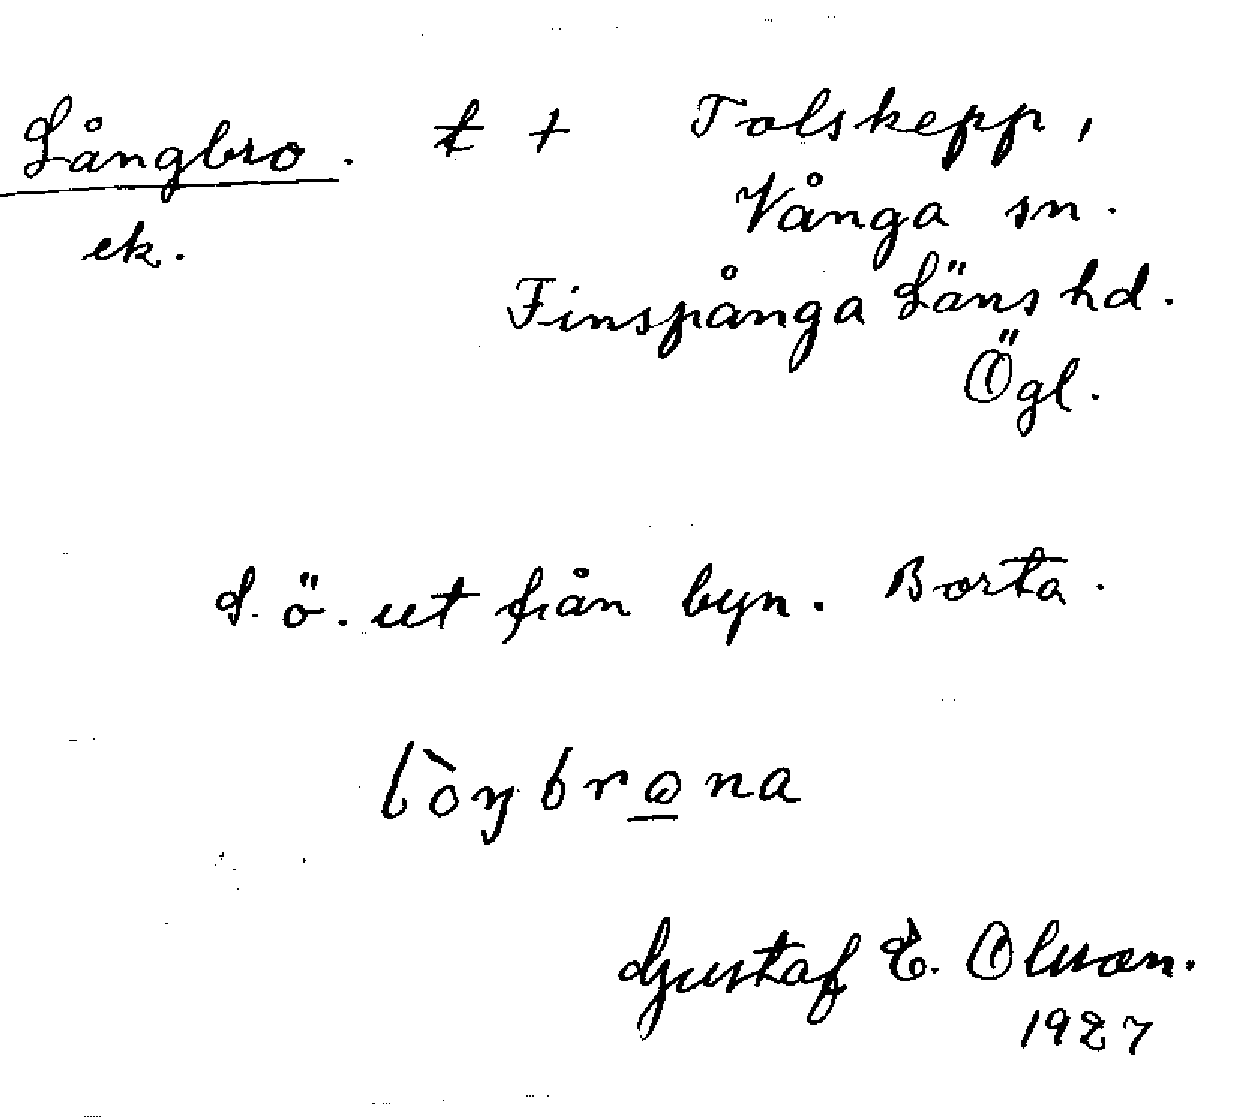 Långbro. t + Tolskepp,
ek. Vånga sn.
Finspånga Läns hd.
Ögl.
S. ö. ut från byn. Borta.
lòŋbrona
Gustaf E. Olsson.
1927